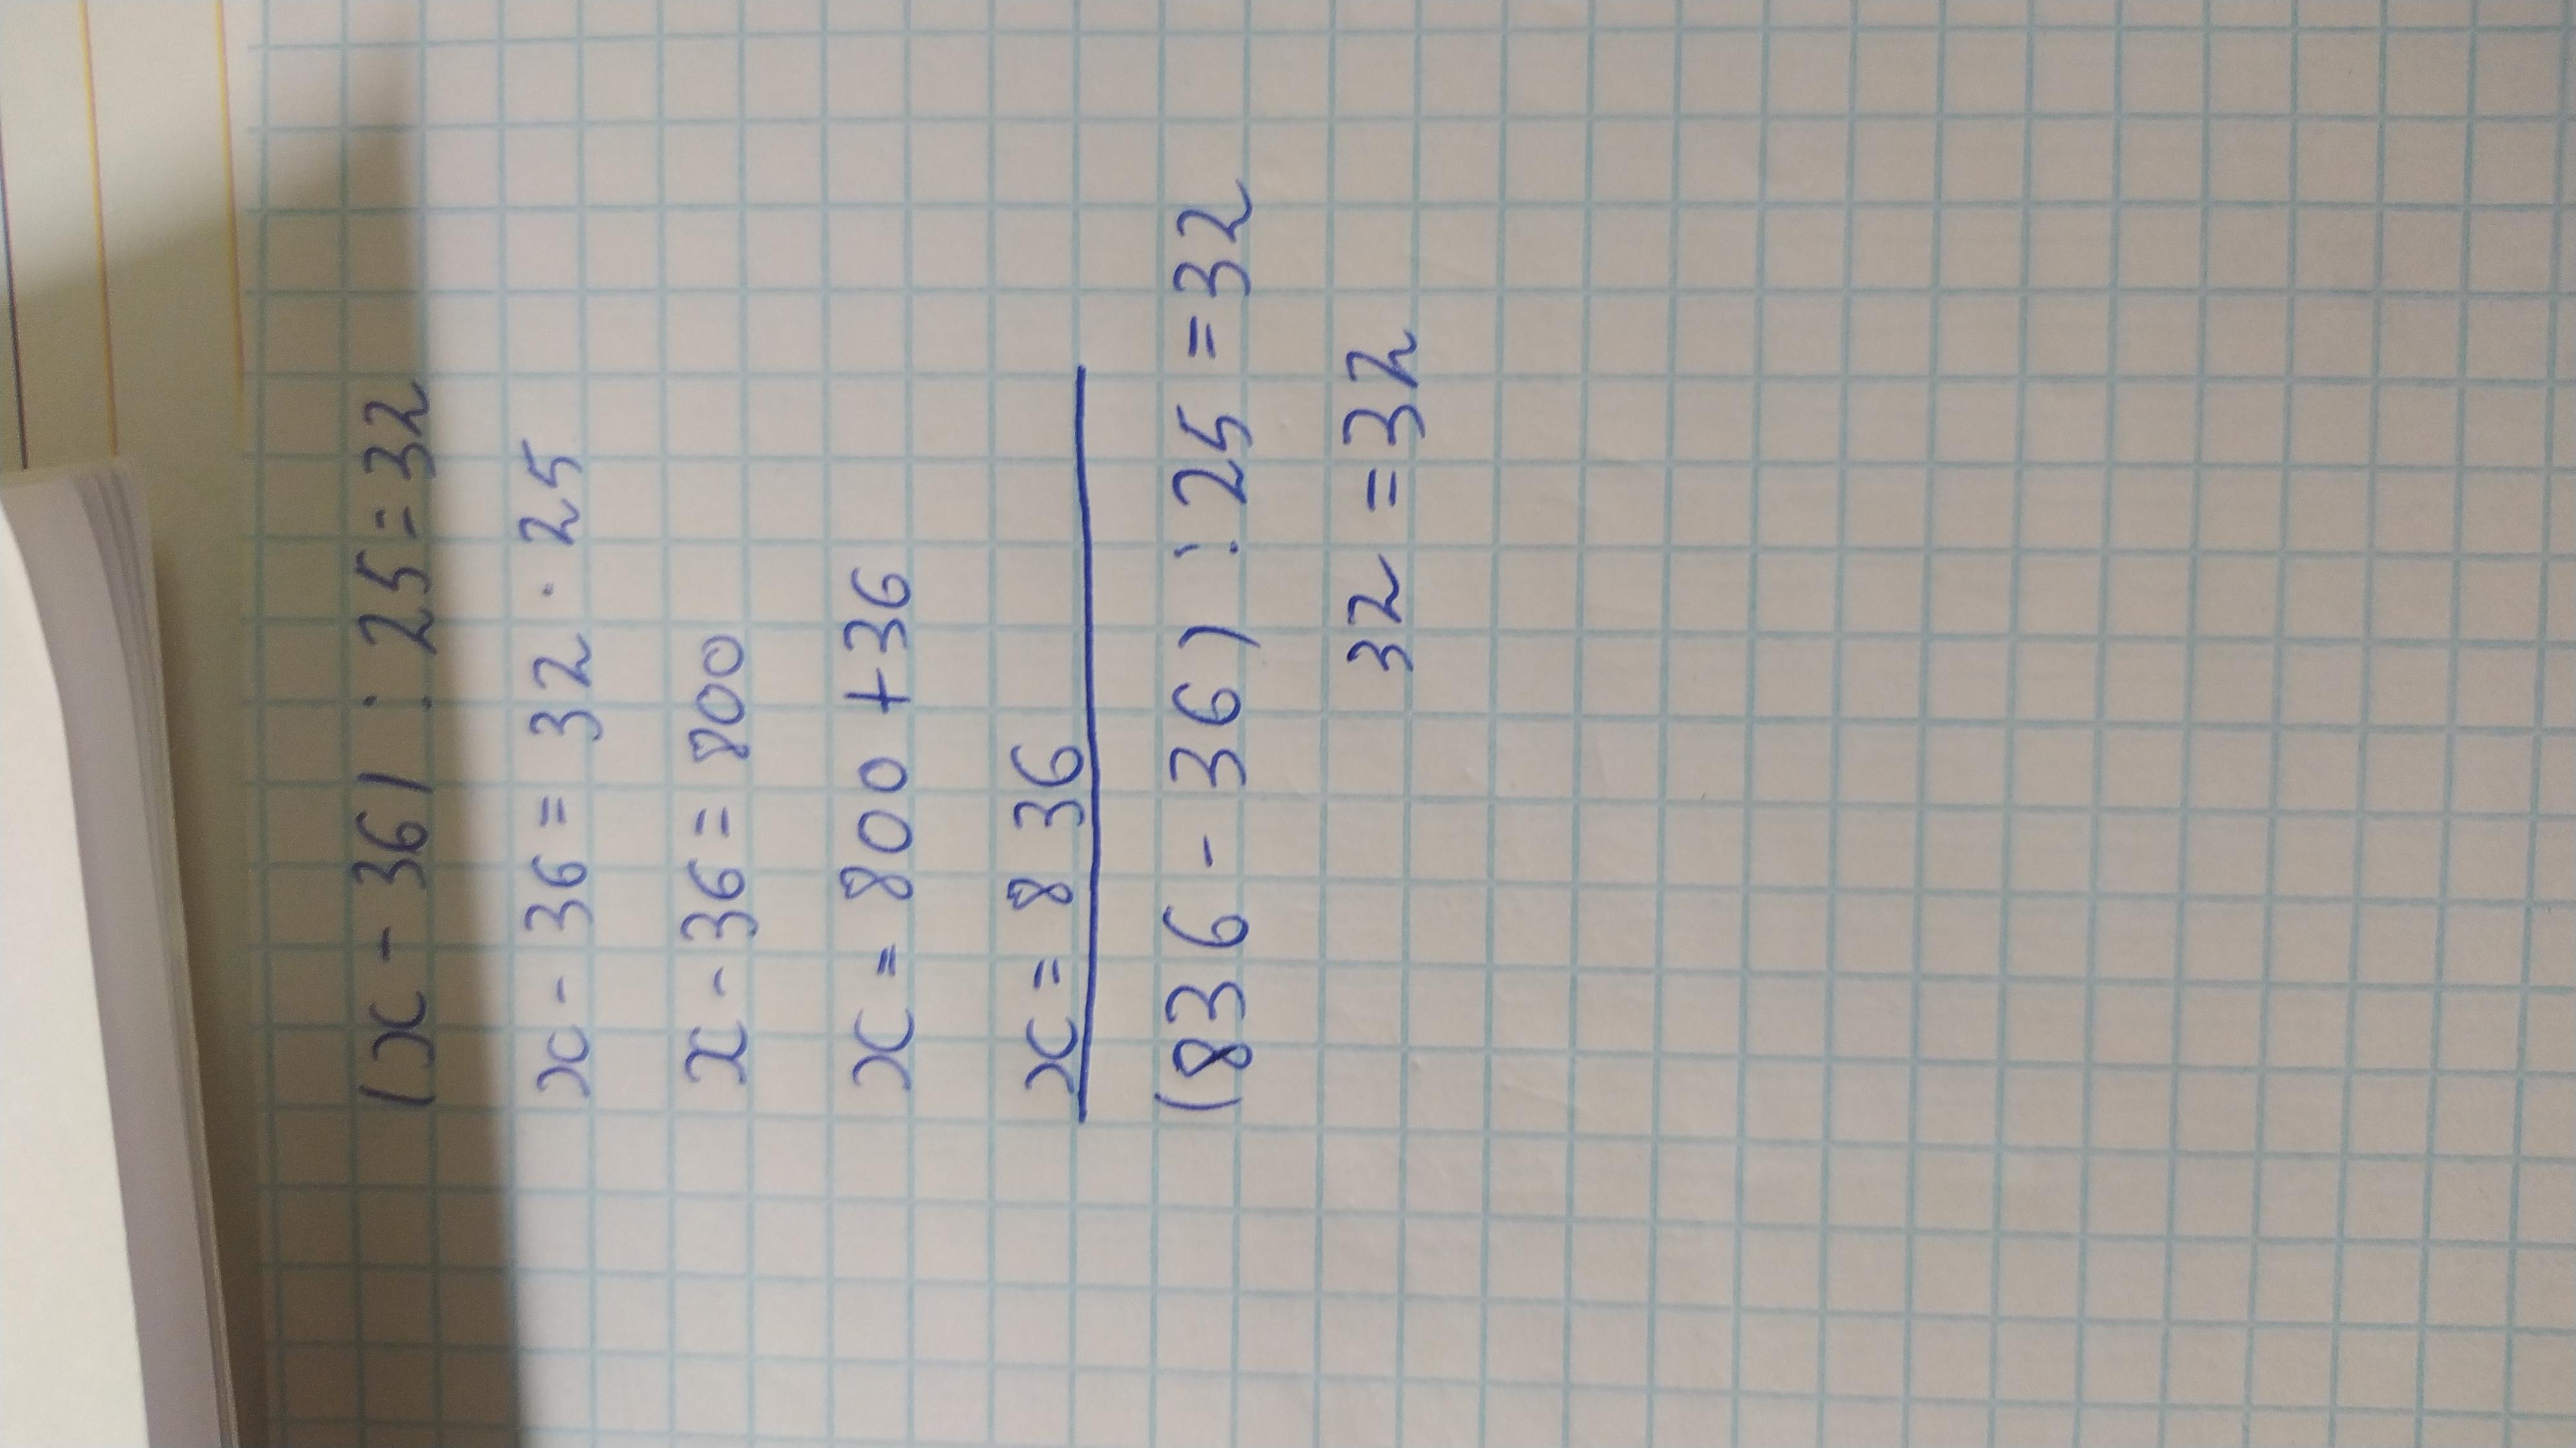 (x - 36) : 25 = 32
x - 36 = 32 · 25
x - 36 = 800
x = 800 + 36
x = 8 36
(836 - 36) : 25 = 32
32 = 32